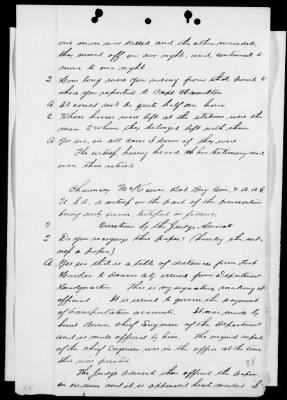 one man was killed and the other wounded,
they moved off on our right, and continued to
move to our right
Q How long were you riding from that point to
where you reported to Capt. Hamilton
A It could not be quite half an hour
Q When horses were left at the stations were the
men to whom they belonged left with them
A Yes sir, in all cases I know of they were
The witness having heard his testimony read
over, then retired
Chauncey McKeever Bvt Brig Genl, & A. A. G
U.S.A., a witness on the part of the prosecution
being duly sworn, testified as follows,
Questions by the Judge Advocate
Q Do you recognize this paper? (handing the wit-
ness a paper)
A. Yes sir, this is a table of distances from Fort
Harker to Denver City issued from Department
Headquarters. This is my signature, making it
official. It is used to govern the payment
of transportation accounts. It was made by
Lieut Brown Chief Engineer of the Department
and is made official by him. The original report
of the Chief Engineer was in the office at the time
this was printed
The Judge Advocate then offered the paper
in evidence and it is appended hereto marked